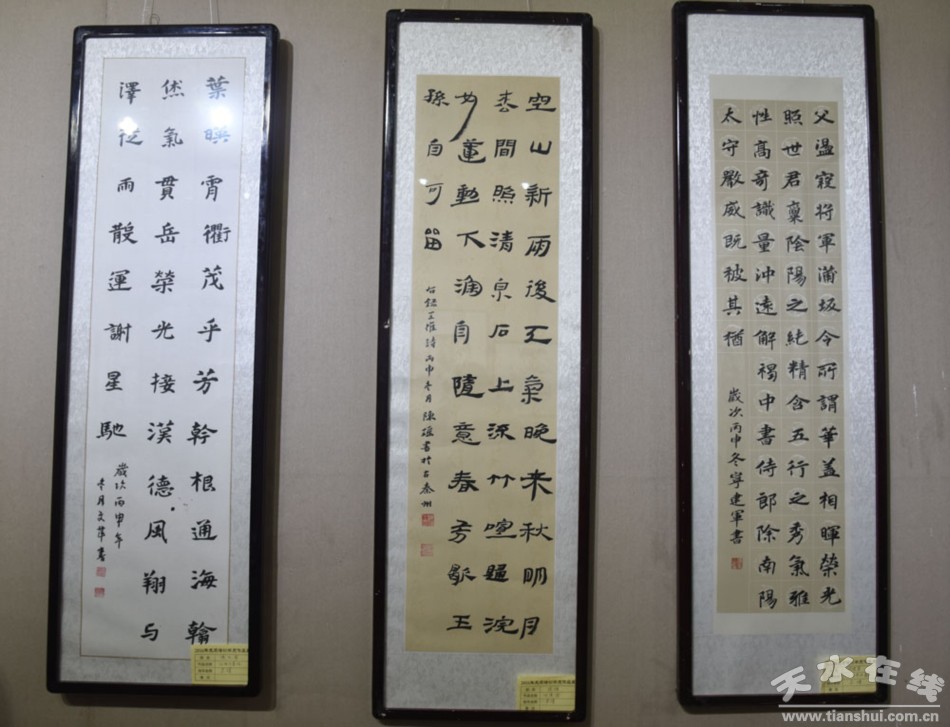 葉暎霄衢茂乎芳幹根通海翰
然氣貫岳榮光接漢德風翔与
澤從雨散運謝星馳
歲次丙申年
冬月文華書
空山新雨後天氣晚來秋明月
松間照清泉石上流竹喧歸浣
女蓮動下漁舟隨意春芳歇王
孫自可留
右錄王維詩丙申冬月陳蘊書於古秦州
父温寢將軍蒲坂令所謂華蓋相暉榮光
照世君稟陰陽之純精含五行之秀氣雅
性高奇識量沖遠解褐中書侍郎除南陽
太守嚴威既被其猶
歲次丙申冬寧建軍書
天水在线
www.tianshui.com.cn